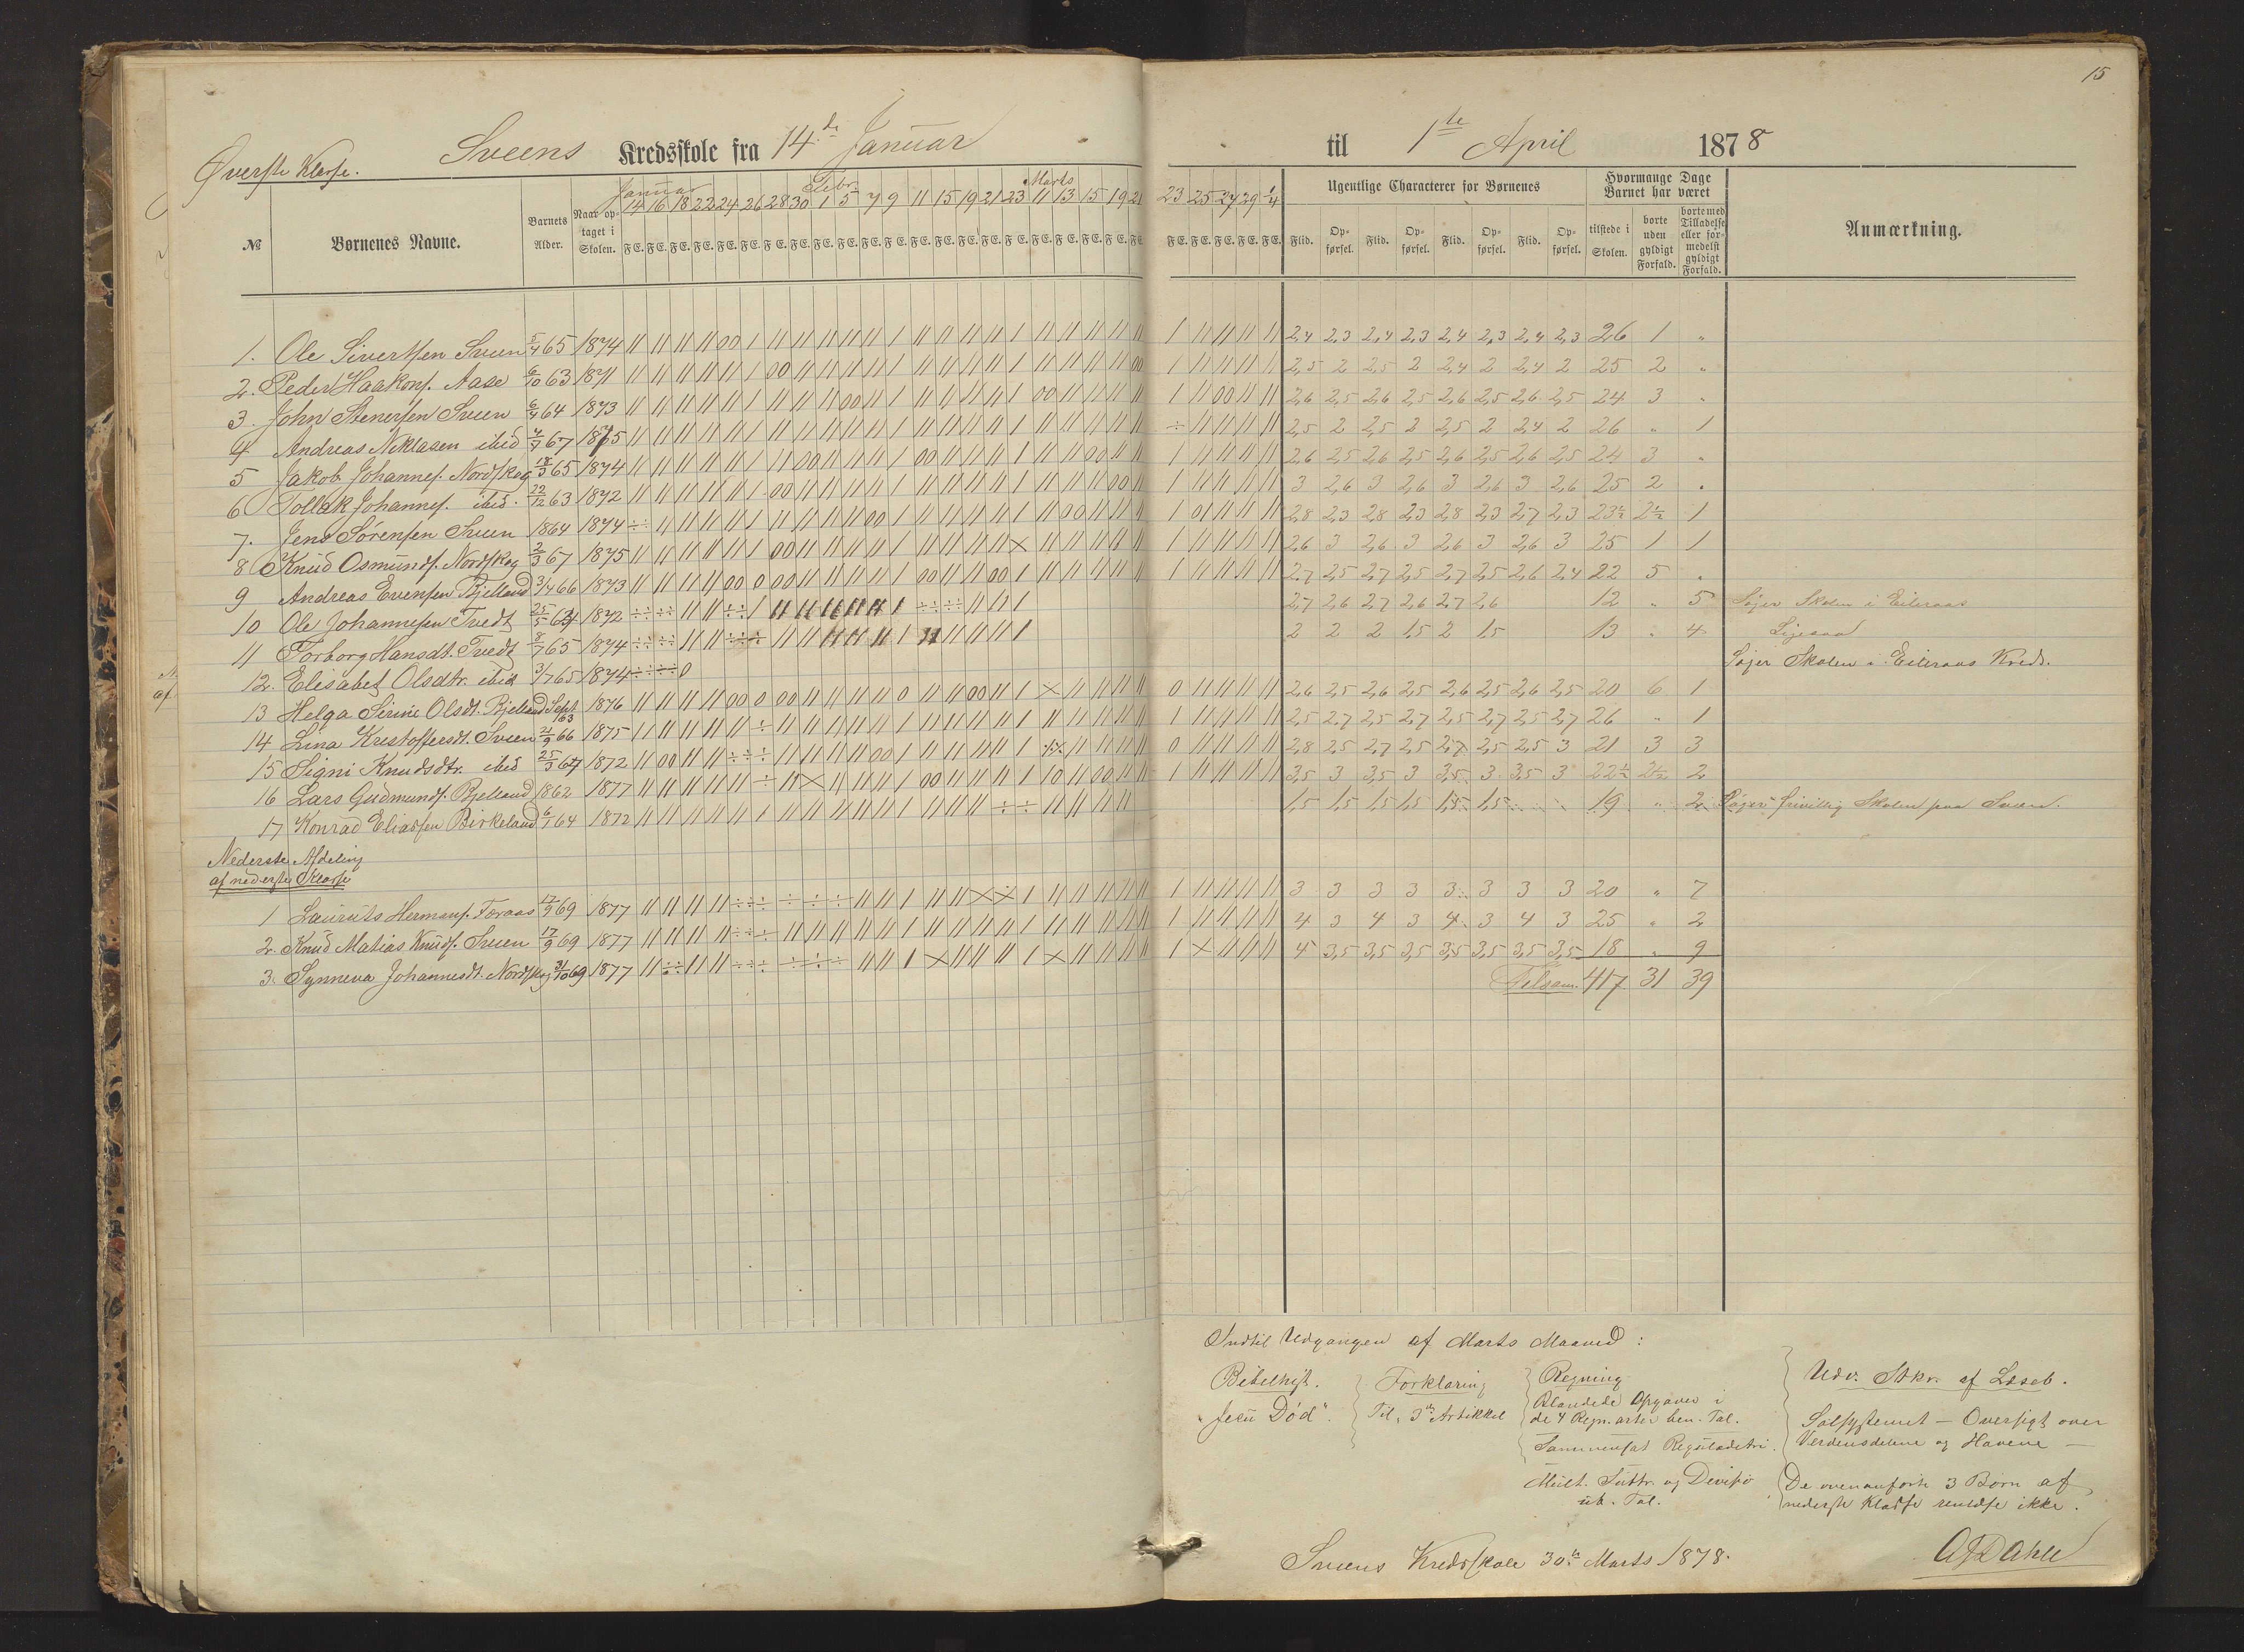 15
Sveens Kredsskole fra 14de Januar til 1ste April 1878
Øverste Klasse.
№ Børnenes Navne. Barnets Alder. Naar optaget i Skolen.
Januar Febr. Marts
14 16 18 22 24 26 28 30 1 5 7 9 11 15 19 21 23 11 13 15 19 21 23 25 27 29 1/4
F E. F E. F E. F E. F E. F E. F E. F E. F E. F E. F E. F E. F E. F E. F E. F E. F E. F E. F E. F E. F E. F E. F E. F E. F E. F E. F E.
Ugentlige Characterer for Børnenes
Flid. Opførsel. Flid. Opførsel. Flid. Opførsel. Flid. Opførsel.
Hvormange Dage Barnet har været
tilstede i Skolen. borte uden gyldigt Forfald. borte med Tilladelse eller formedelst gyldigt Forfald.
Anmærkning.
1. Ole Sivertsen Sveen 5/4 65 1874 2,4 2,3 2,4 2,3 2,4 2,3 2,4 2,3 26 1 "
2. Peder Haakons. Aase 6/10 63 1871 2,5 2 2,5 2 2,4 2 2,4 2 25 2 "
3. John Stenersen Sveen 6/4 64 1873 2,6 2,5 2,6 2,5 2,6 2,5 2,6 2,5 24 3 "
4 Andreas Niklasen ibid 4/7 67 1875 2,5 2 2,5 2 2,5 2 2,4 2 26 " 1
5 Jakob Johannes. Nordskog 8/3 65 1874 2,6 2,5 2,6 2,5 2,6 2,5 2,6 2,5 24 3 "
6 Tollak Johannes. ibid. 22/12 63 1872 3 2,6 3 2,6 3 2,6 3 2,6 25 2 "
7. Jens Sørensen Sveen 1864 1874 2,8 2,3 2,8 2,3 2,8 2,3 2,7 2,3 23½ 2½ 1
8 Knud Osmunds. Nordskog 2/3 67 1875 2,6 3 2,6 3 2,6 3 2,6 3 25 1 1
9 Andreas Evensen Bjelland 3/4 66 1873 2,7 2,5 2,7 2,5 2,7 2,5 2,6 2,4 22 5 "
10 Ole Johannesen Tvedt 25/5 64 1872 2,7 2,6 2,7 2,6 2,7 2,6 12 " 5 Søger Skolen i Eileraas
11 Torborg Hansdt. Tvedt 8/7 65 1874 2 2 2 1,5 2 1,5 13 " 4 Ligesaa
12. Elisabet Olsdtr. ibid 3/7 65 1874 Søger Skolen i Eileraas Kreds.
13 Helga Serine Olsdt. Bjelland Sept 63 1876 2,6 2,5 2,6 2,5 2,6 2,5 2,6 2,5 20 6 1
14 Lina Kristoffersdt. Sveen 21/9 66 1875 2,5 2,7 2,5 2,7 2,5 2,7 2,5 2,7 26 " 1
15 Signi Knudsdtr. ibid 25/3 64 1872 2,8 2,5 2,7 2,5 2,7 2,5 2,5 3 21 3 3
16 Lars Gudmunds. Bjelland 1862 1877 3,5 3 3,5 3 3,5 3 3,5 3 22½ 2½ 2
17 Konrad Eliassen Birkeland 6/7 64 1872 1,5 1,5 1,5 1,5 1,5 1,5 19 " 2 Søger frivillig Skolen paa Sveen.
Nederste Afdeling
af nederste Klasse
1 Lauruts Hermans. Toraas 12/9 69 1877 3 3 3 3 3 3 3 3 20 " 7
2. Knud Matias Knuds. Sveen 17/9 69 1877 4 3 4 3 4 3 4 3 25 " 2
3. Synneva Johannesdt. Nordskog 31/10 69 1877 4 3,5 3,5 3,5 3,5 3,5 3,5 3,5 18 " 9
Tilsam. 417 31 39
Indtil Udgangen af Marts Maaned:
Bibelhist.
"Jesu Død".
Forklaring
Til 3die Artikkel
Regning
Blandede Opgaver i
de 4 Regn.arter ben. Tal.
Sammensat Reguladetri.
Mult. Subtr. og Divisio
ub. Tal.
Udv. Stkr. af Læseb.
Solsystemet – Oversigt over
Verdensdelene og Havene –
De ovenanførte 3 Børn af
nederste Klasse ikke.
Sveens Kredsskole 30te Marts 1878.
Dahle